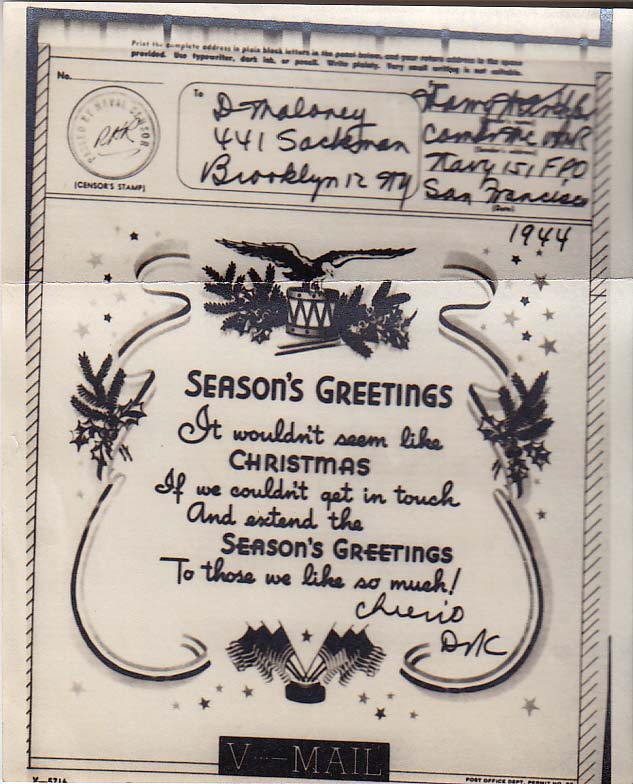 Print the complete address in plain block letters in the panel below, and your return address in the space
provided. Use typewriter, dark ink, or pencil. Write plainly. Very small writing is not suitable.
No.
PASSED BY NAVAL CENSOR
(CENSOR'S STAMP)
To
D Maloney
441 Sackman
Brooklyn 12 NY
Navy 151, FPO
San Francisco
(Date)
1944
SEASON'S GREETINGS
It wouldn't seem like
CHRISTMAS
If we couldn't get in touch
And extend the
SEASON'S GREETINGS
To those we like so much!
Cheerio
V···—MAIL
V-5716
POST OFFICE DEPT. PERMIT NO.